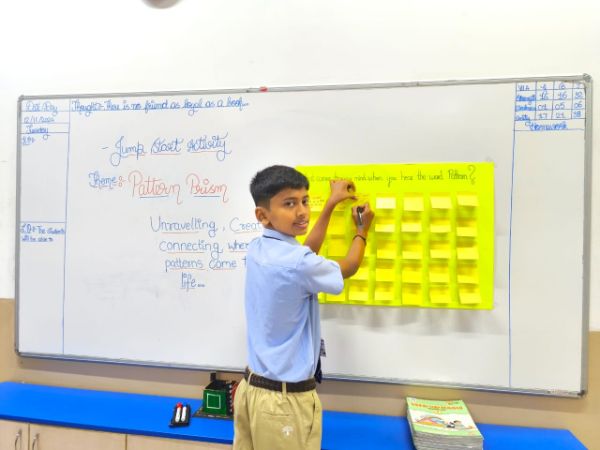 Date/Day
12/11/2024
Tuesday
Thought:- There is no friend as loyal as a book...
- Jump Start Activity
Theme:- Pattern Prism
Unravelling, Creat
connecting when
patterns come t
life...
The students
will be able to
mind when you hear the word Pattern?
VII A
16 16 32
01 05 06
Homework